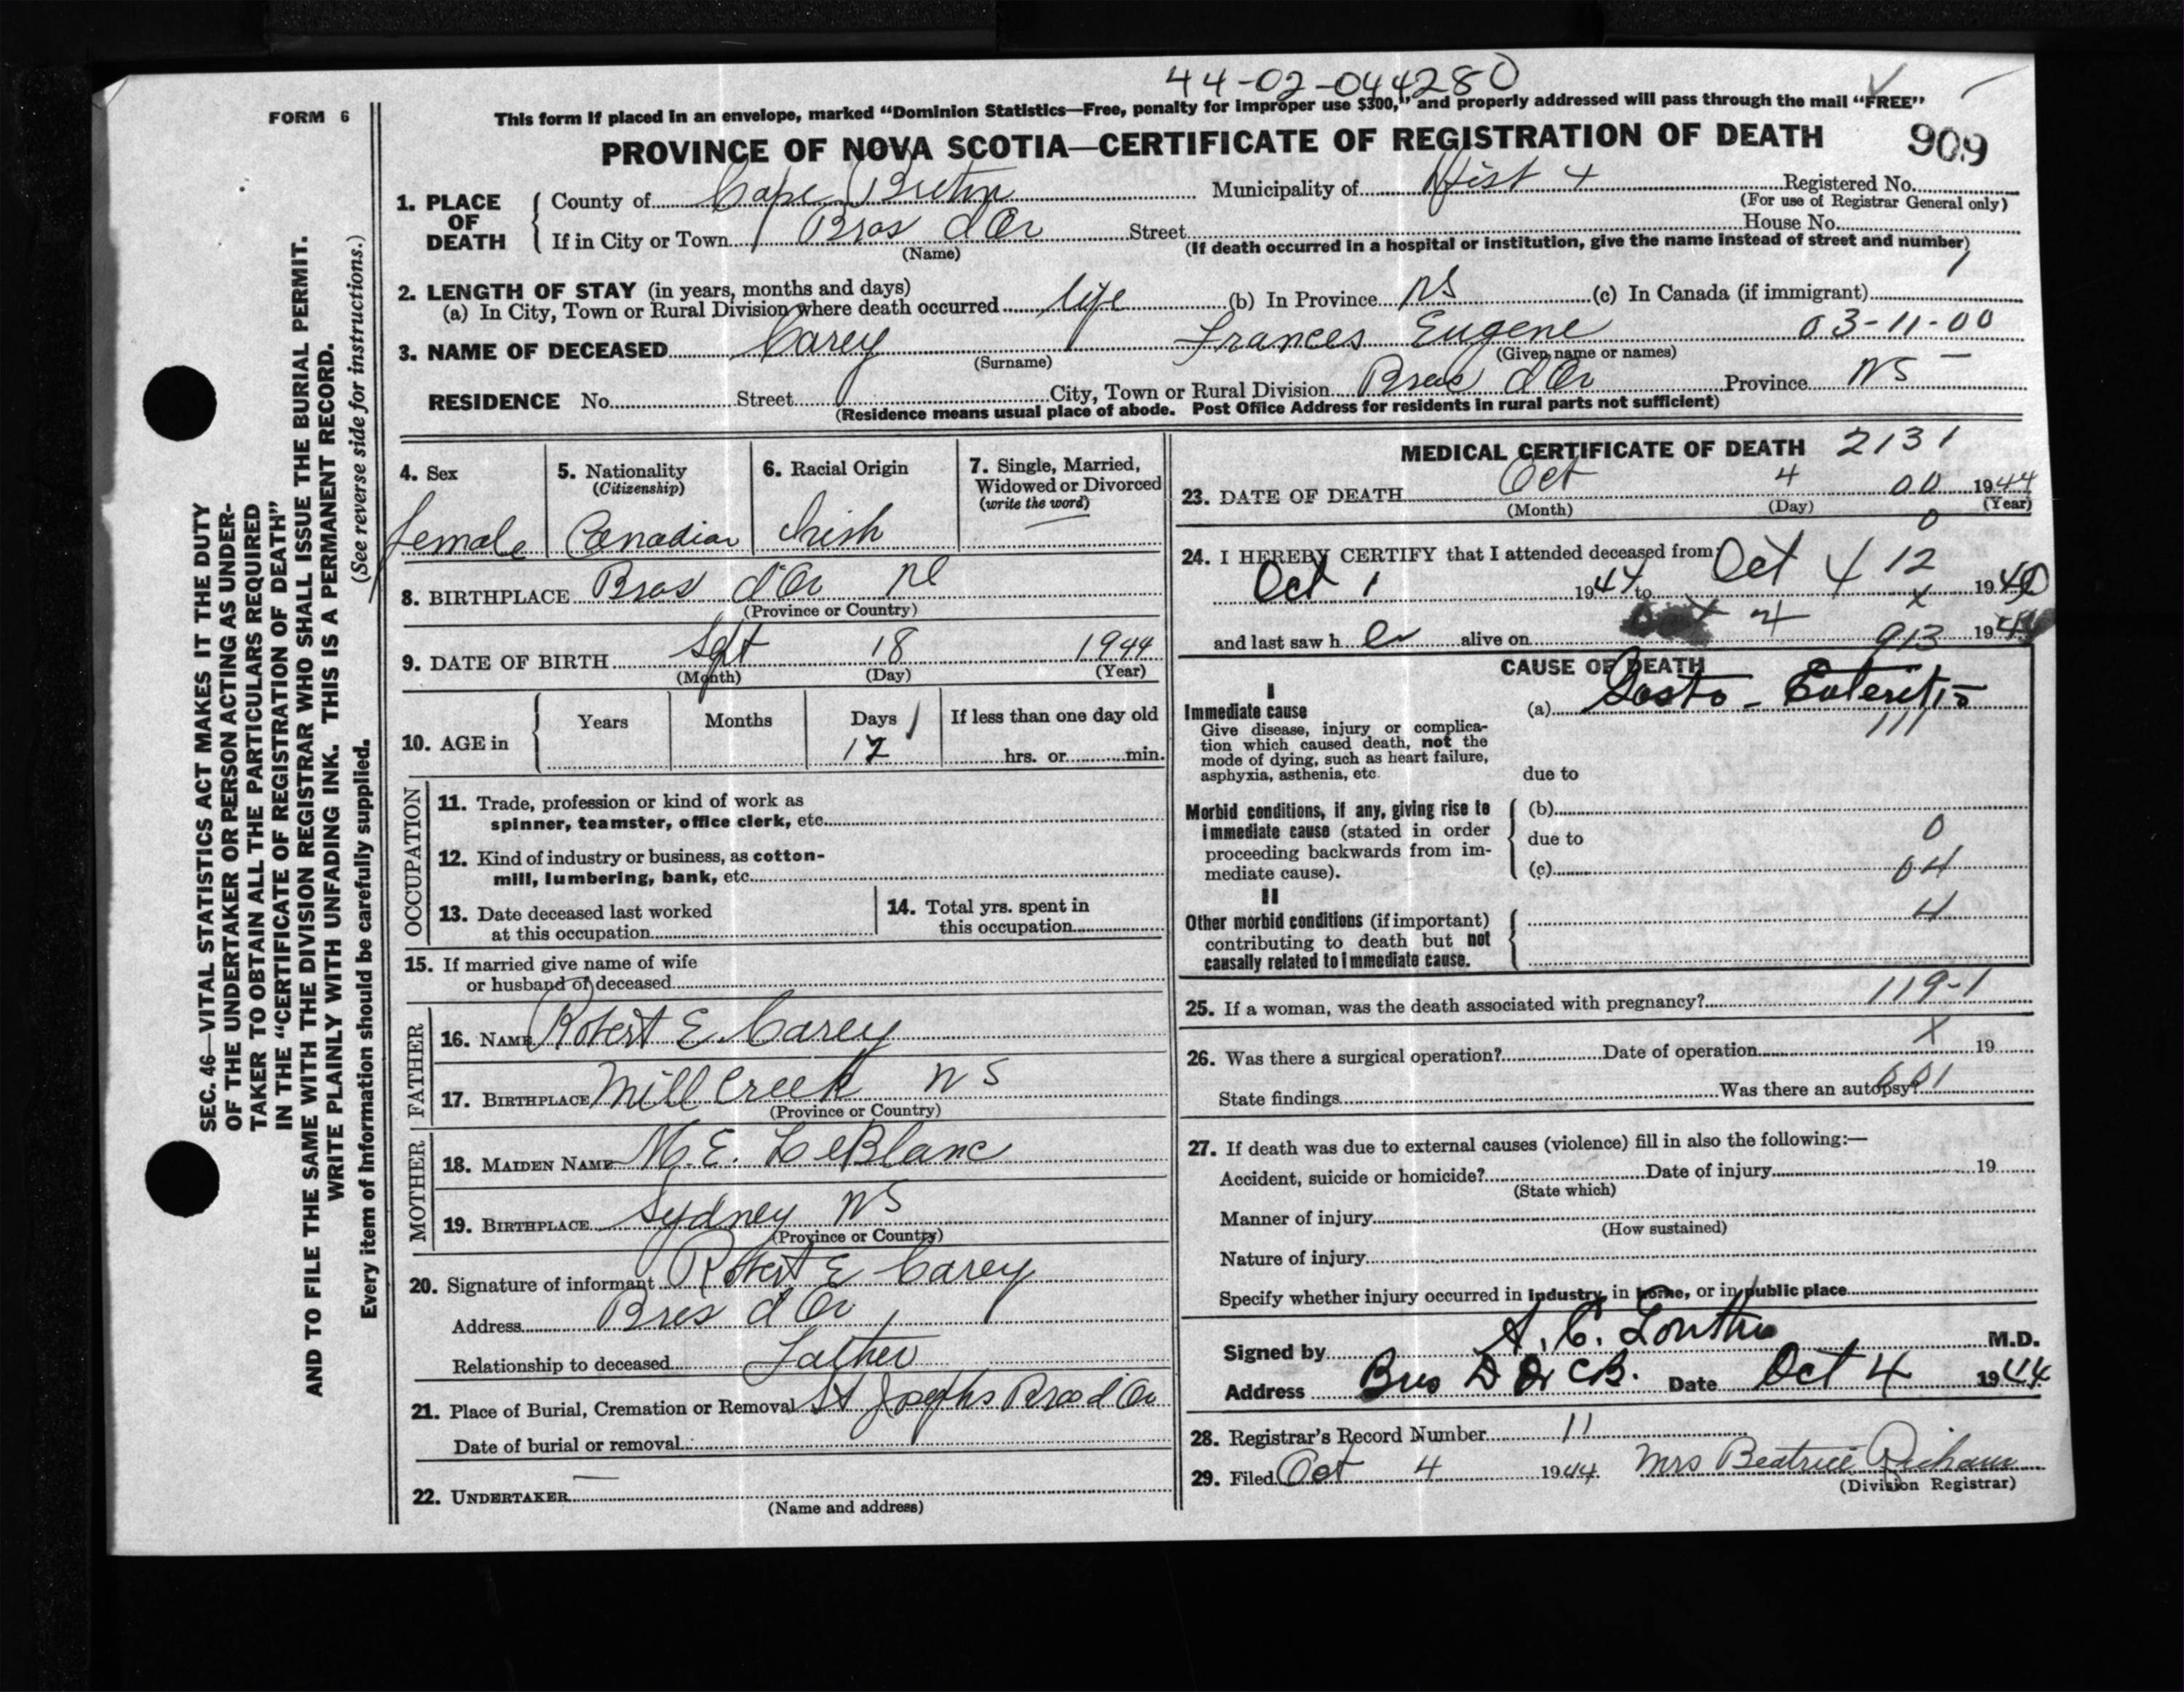 44-02-044280
FORM 6
This form if placed in an envelope, marked "Dominion Statistics—Free, penalty for improper use $300," and properly addressed will pass through the mail "FREE"
PROVINCE OF NOVA SCOTIA—CERTIFICATE OF REGISTRATION OF DEATH 909
1. PLACE OF DEATH County of Cape Breton Municipality of Dist 4 Registered No.
(For use of Registrar General only)
If in City or Town Bras d'Or Street House No.
(Name) (If death occurred in a hospital or institution, give the name instead of street and number)
1
2. LENGTH OF STAY (in years, months and days)
(a) In City, Town or Rural Division where death occurred life (b) In Province NS (c) In Canada (if immigrant)
3. NAME OF DECEASED Carey Frances Eugene 03-11-00
(Surname) (Given name or names)
RESIDENCE No. Street City, Town or Rural Division Bras d'Or Province NS
(Residence means usual place of abode. Post Office Address for residents in rural parts not sufficient)
4. Sex 5. Nationality (Citizenship) 6. Racial Origin 7. Single, Married, Widowed or Divorced (write the word)
female Canadian Irish —
8. BIRTHPLACE Bras d'Or
(Province or Country)
9. DATE OF BIRTH Sept 18 1944
(Month) (Day) (Year)
10. AGE in Years Months Days If less than one day old
17 hrs. or min.
OCCUPATION
11. Trade, profession or kind of work as
spinner, teamster, office clerk, etc.
12. Kind of industry or business, as cotton-
mill, lumbering, bank, etc.
13. Date deceased last worked
at this occupation
14. Total yrs. spent in
this occupation
15. If married give name of wife
or husband of deceased
FATHER
16. NAME Robert E. Carey
17. BIRTHPLACE Mill Creek NS
(Province or Country)
MOTHER
18. MAIDEN NAME M. E. LeBlanc
19. BIRTHPLACE Sydney NS
(Province or Country)
20. Signature of informant Robert E Carey
Address Bras d'Or
Relationship to deceased Father
21. Place of Burial, Cremation or Removal St Josephs Bras d'Or
Date of burial or removal
22. UNDERTAKER —
(Name and address)
MEDICAL CERTIFICATE OF DEATH 2131
23. DATE OF DEATH Oct 4 00 1944
(Month) (Day) (Year)
0
24. I HEREBY CERTIFY that I attended deceased from
Oct 1 1944 to Oct 4 12 19
x
and last saw h er alive on 4 913 19
CAUSE OF DEATH
I
Immediate cause
Give disease, injury or complica-
tion which caused death, not the
mode of dying, such as heart failure,
asphyxia, asthenia, etc.
(a) Gastro-Enteritis
111
due to
Morbid conditions, if any, giving rise to
immediate cause (stated in order
proceeding backwards from im-
mediate cause).
(b)
due to 0
(c) 04
II
Other morbid conditions (if important)
contributing to death but not
causally related to immediate cause.
4
25. If a woman, was the death associated with pregnancy? 119-1
26. Was there a surgical operation? Date of operation X 19
State findings Was there an autopsy?
27. If death was due to external causes (violence) fill in also the following:—
Accident, suicide or homicide? Date of injury 19
(State which)
Manner of injury
(How sustained)
Nature of injury
Specify whether injury occurred in industry, in home, or in public place
Signed by A. C. M.D.
Address Bras D'Or CB. Date Oct 4 1944
28. Registrar's Record Number 11
29. Filed Oct 4 1944 Mrs Beatrice
(Division Registrar)
SEC. 46—VITAL STATISTICS ACT MAKES IT THE DUTY
OF THE UNDERTAKER OR PERSON ACTING AS UNDER-
TAKER TO OBTAIN ALL THE PARTICULARS REQUIRED
IN THE "CERTIFICATE OF REGISTRATION OF DEATH"
AND TO FILE THE SAME WITH THE DIVISION REGISTRAR WHO SHALL ISSUE THE BURIAL PERMIT.
WRITE PLAINLY WITH UNFADING INK. THIS IS A PERMANENT RECORD.
Every item of Information should be carefully supplied. (See reverse side for instructions.)